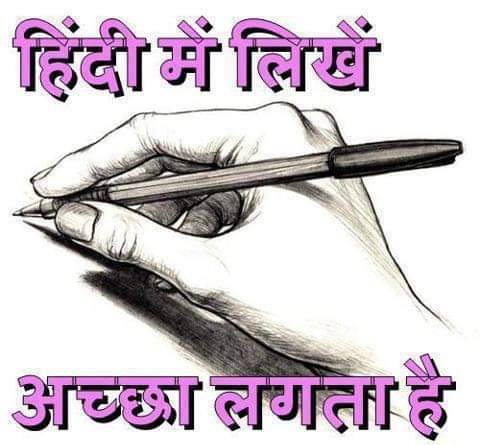 हिंदी में लिखें
अच्छा लगता है